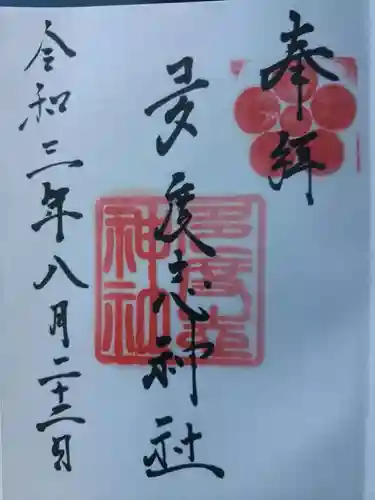 奉拝
多度志神社
令和三年八月二十二日
多度志
神社